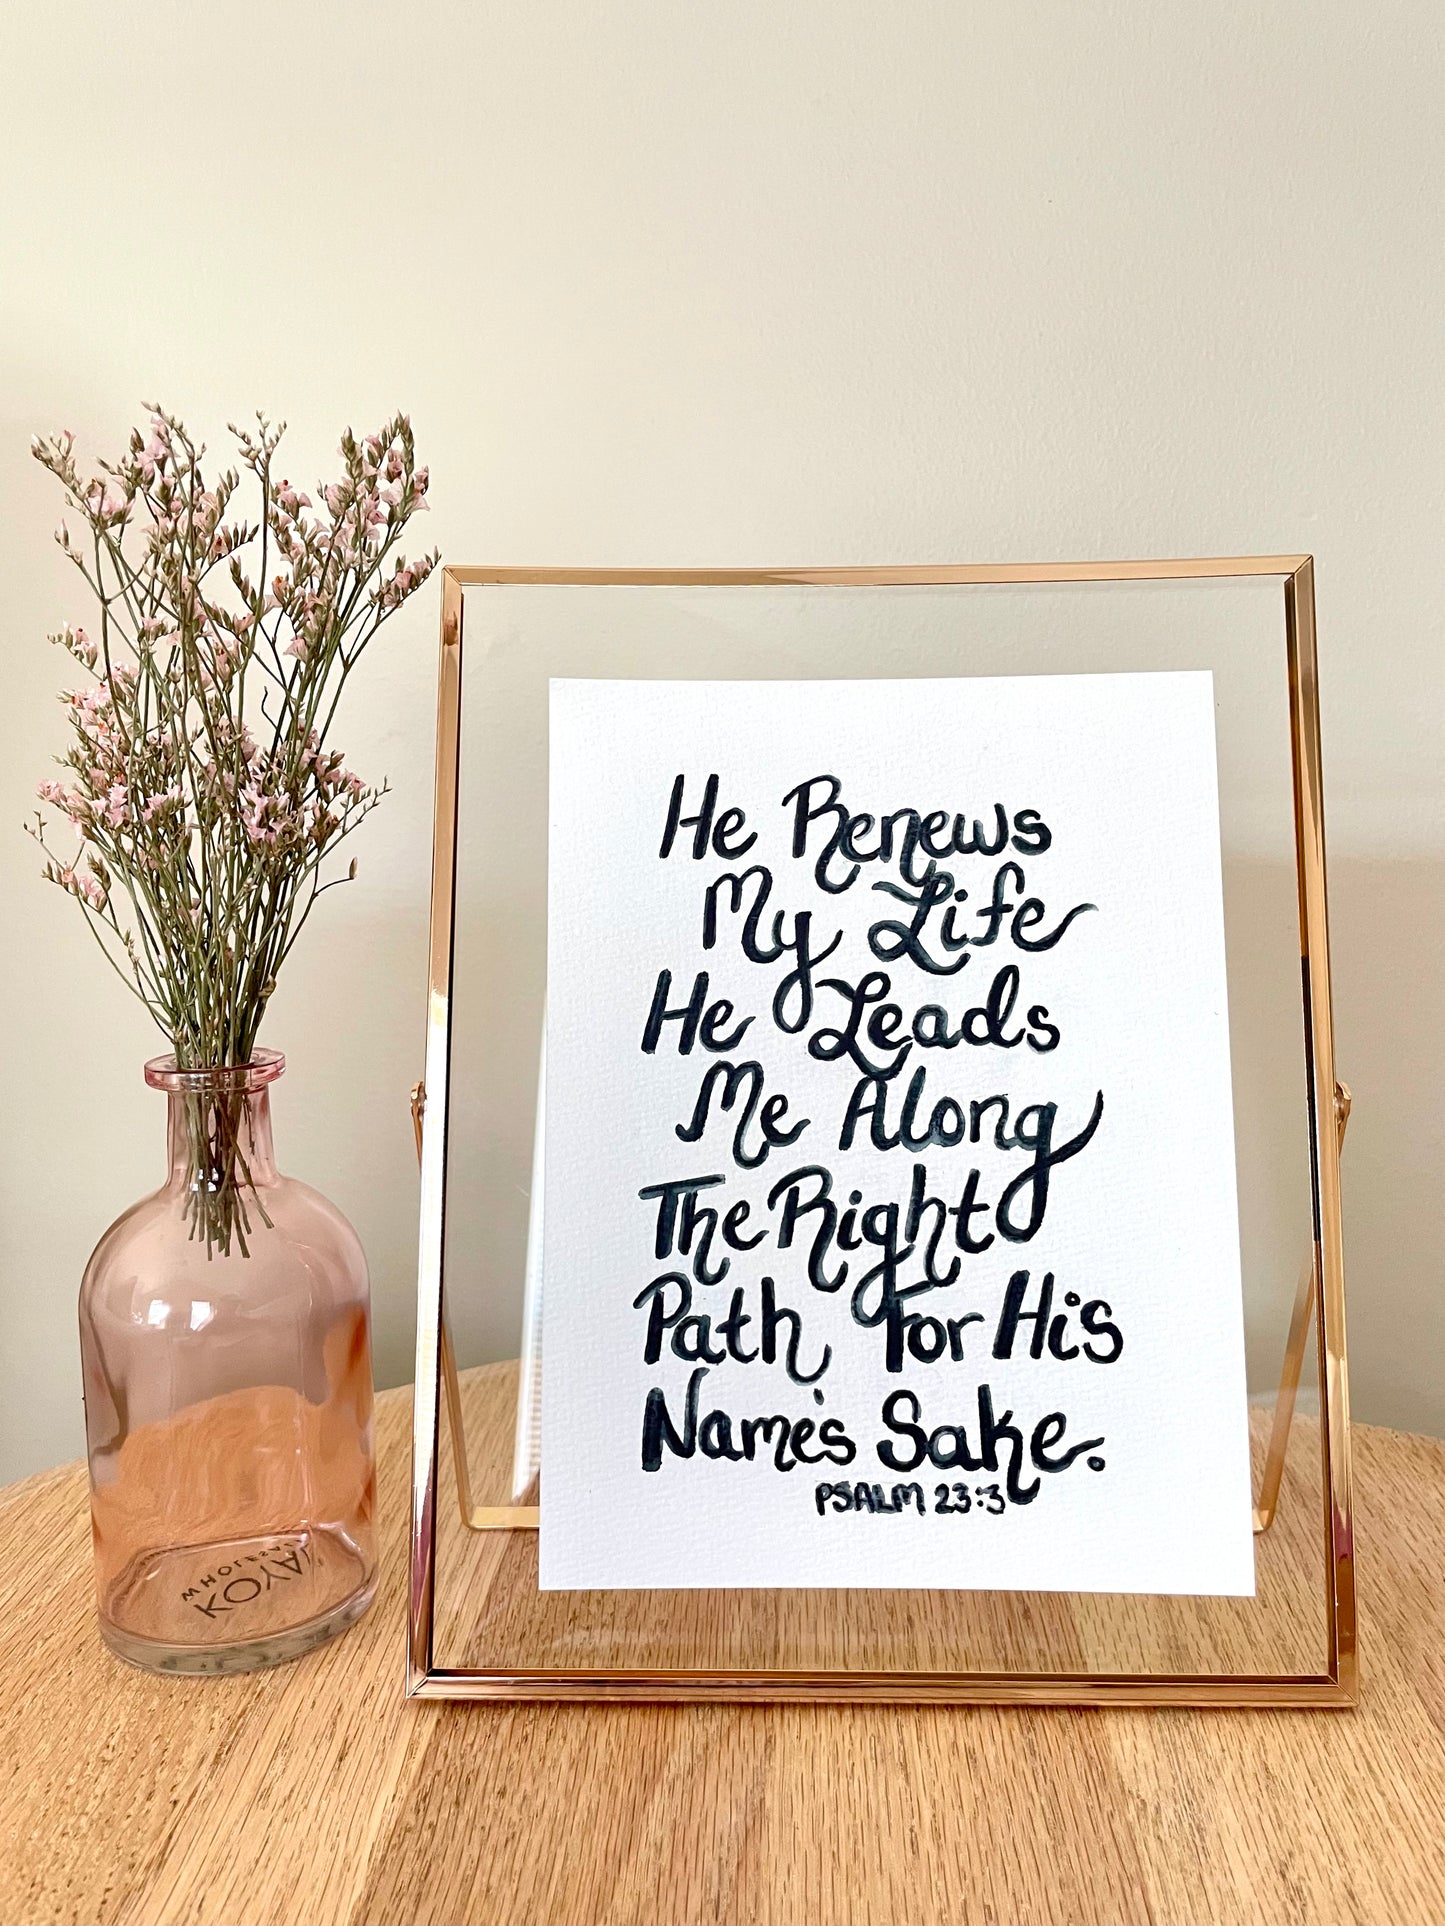 He Renews
My Life
He Leads
Me Along
The Right
Path For His
Name's Sake.
PSALM 23:3
WHOLESALE
KOYAL